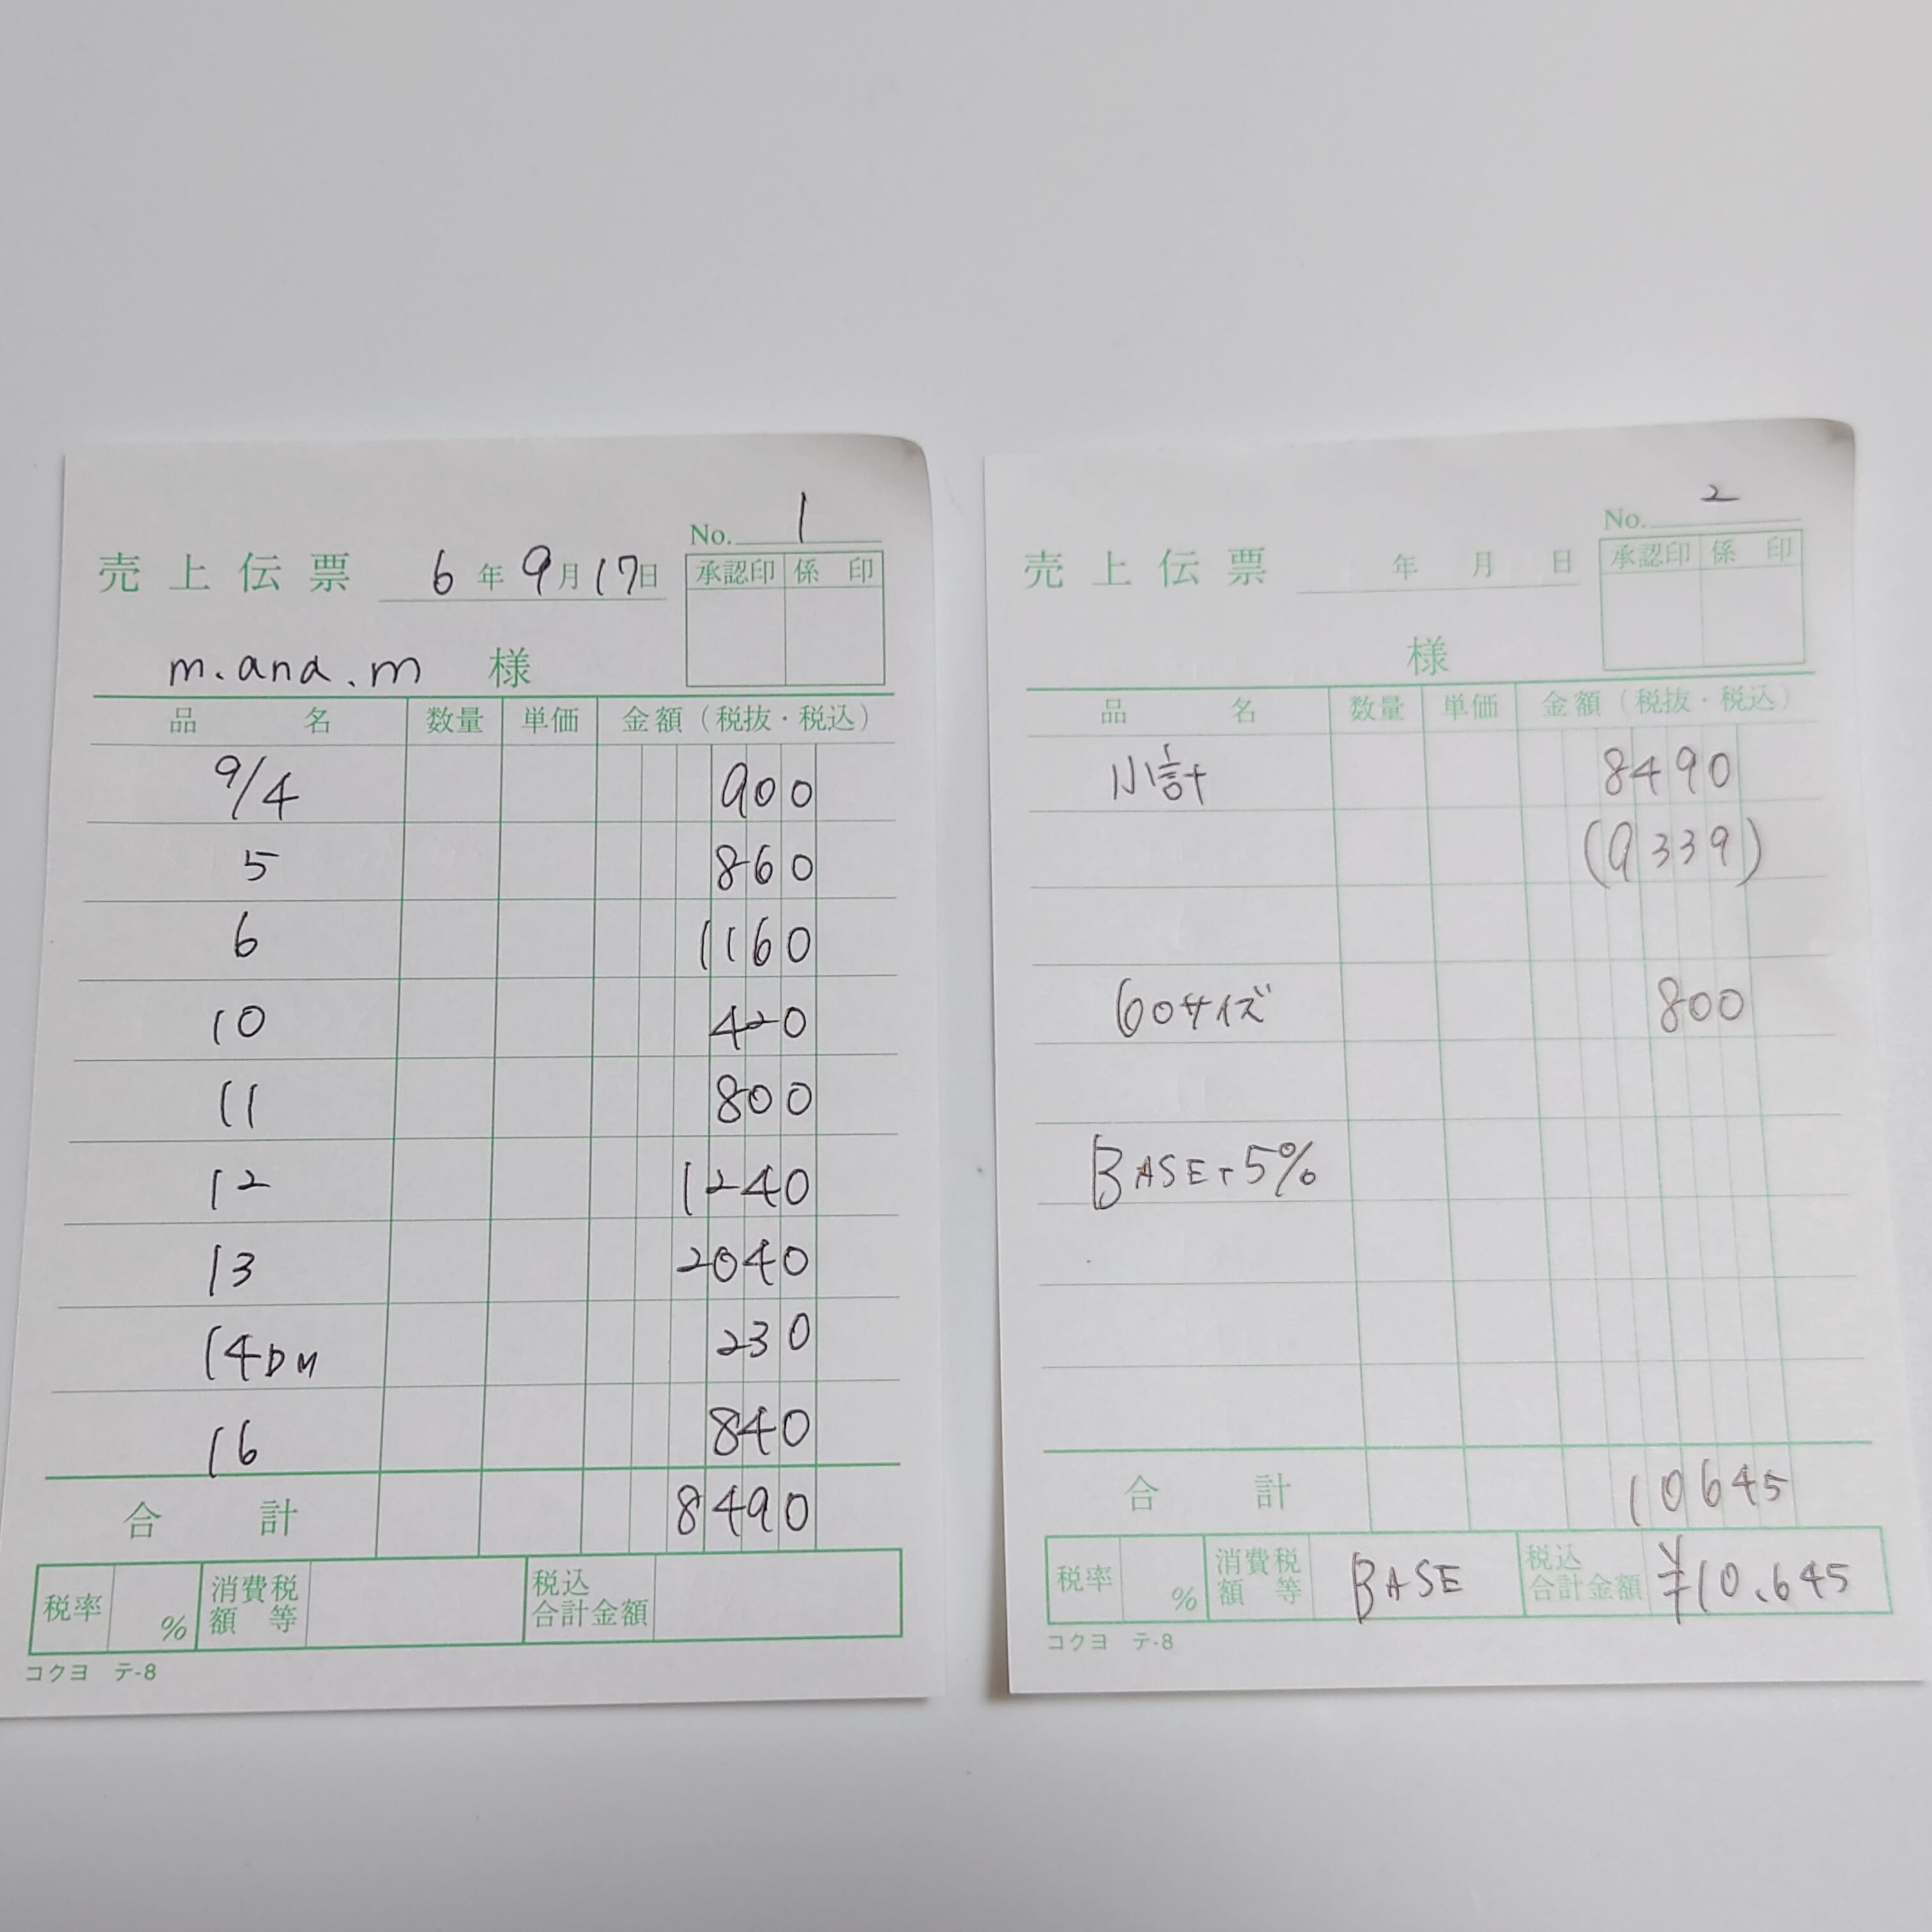 No. 1
売上伝票 6年9月17日
承認印 係印
m.and.m 様
品名 数量 単価 金額（税抜・税込）
9/4 900
5 860
6 1160
10 420
11 800
12 1240
13 2040
14DM 230
16 840
合計 8490
税率 % 消費税額等 税込合計金額
コクヨ テ-8
No. 2
売上伝票 年 月 日
承認印 係印
様
品名 数量 単価 金額（税抜・税込）
小計 8490
(9339)
60サイズ 800
BASE+5%
合計 10645
税率 % 消費税額等 BASE 税込合計金額 ¥10.645
コクヨ テ-8